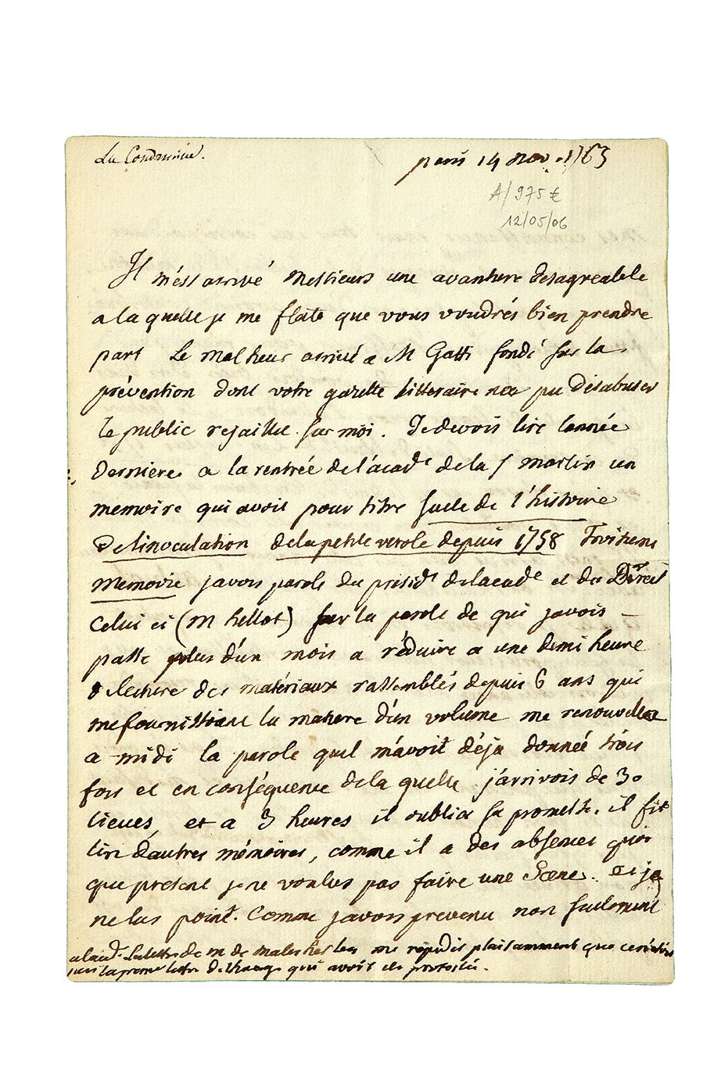 La Condamine.
paris 14 nov. 1763
A/975 €
12/05/06
Il m'est arrivé messieurs une avanture desagreable
a la quelle je me flate que vous voudrés bien prendre
part Le malheur arrivé a M Gatti fondé sur la
prévention dont votre gazette litteraire n'a pu desabuser
le public rejaillit sur moi. Je devois lire l'année
derniere a la rentrée de l'acad^e de la S^t martin un
memoire qui avoit pour titre suite de l'histoire
de l'inoculation de la petite verole depuis 1758 Troisieme
Memoire j'avois parole du presid^t de l'acad^e et du Direct^r
celui ci (M hellot) sur la parole de qui j'avois
passé plus d'un mois a réduire a une demi heure
de lecture des matériaux rassemblés depuis 6 ans qui
me fournissoient la matiere d'un volume me renouvella
a midi la parole quil m'avoit déja donnée trois
fois et en conséquence de la quelle j'arrivois de 30
lieues, et a 3 heures il oublia sa promesse. il fit
lire d'autres mémoires, comme il a des absences quoi
que present je ne voulus pas faire une Scene. et je
ne lus point. Comme j'avois prevenu non seulement
de m de malesherbes me répondit plaisamment que
la lettre qui avoit